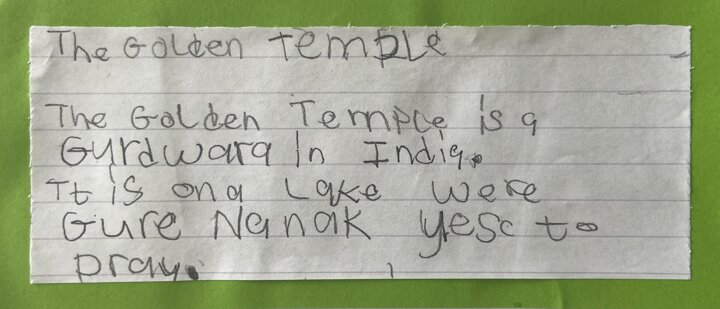 The Golden Temple
The Golden Temple is a
Gurdwara in India.
It is on a Lake were
Gure Nanak yese to
pray.